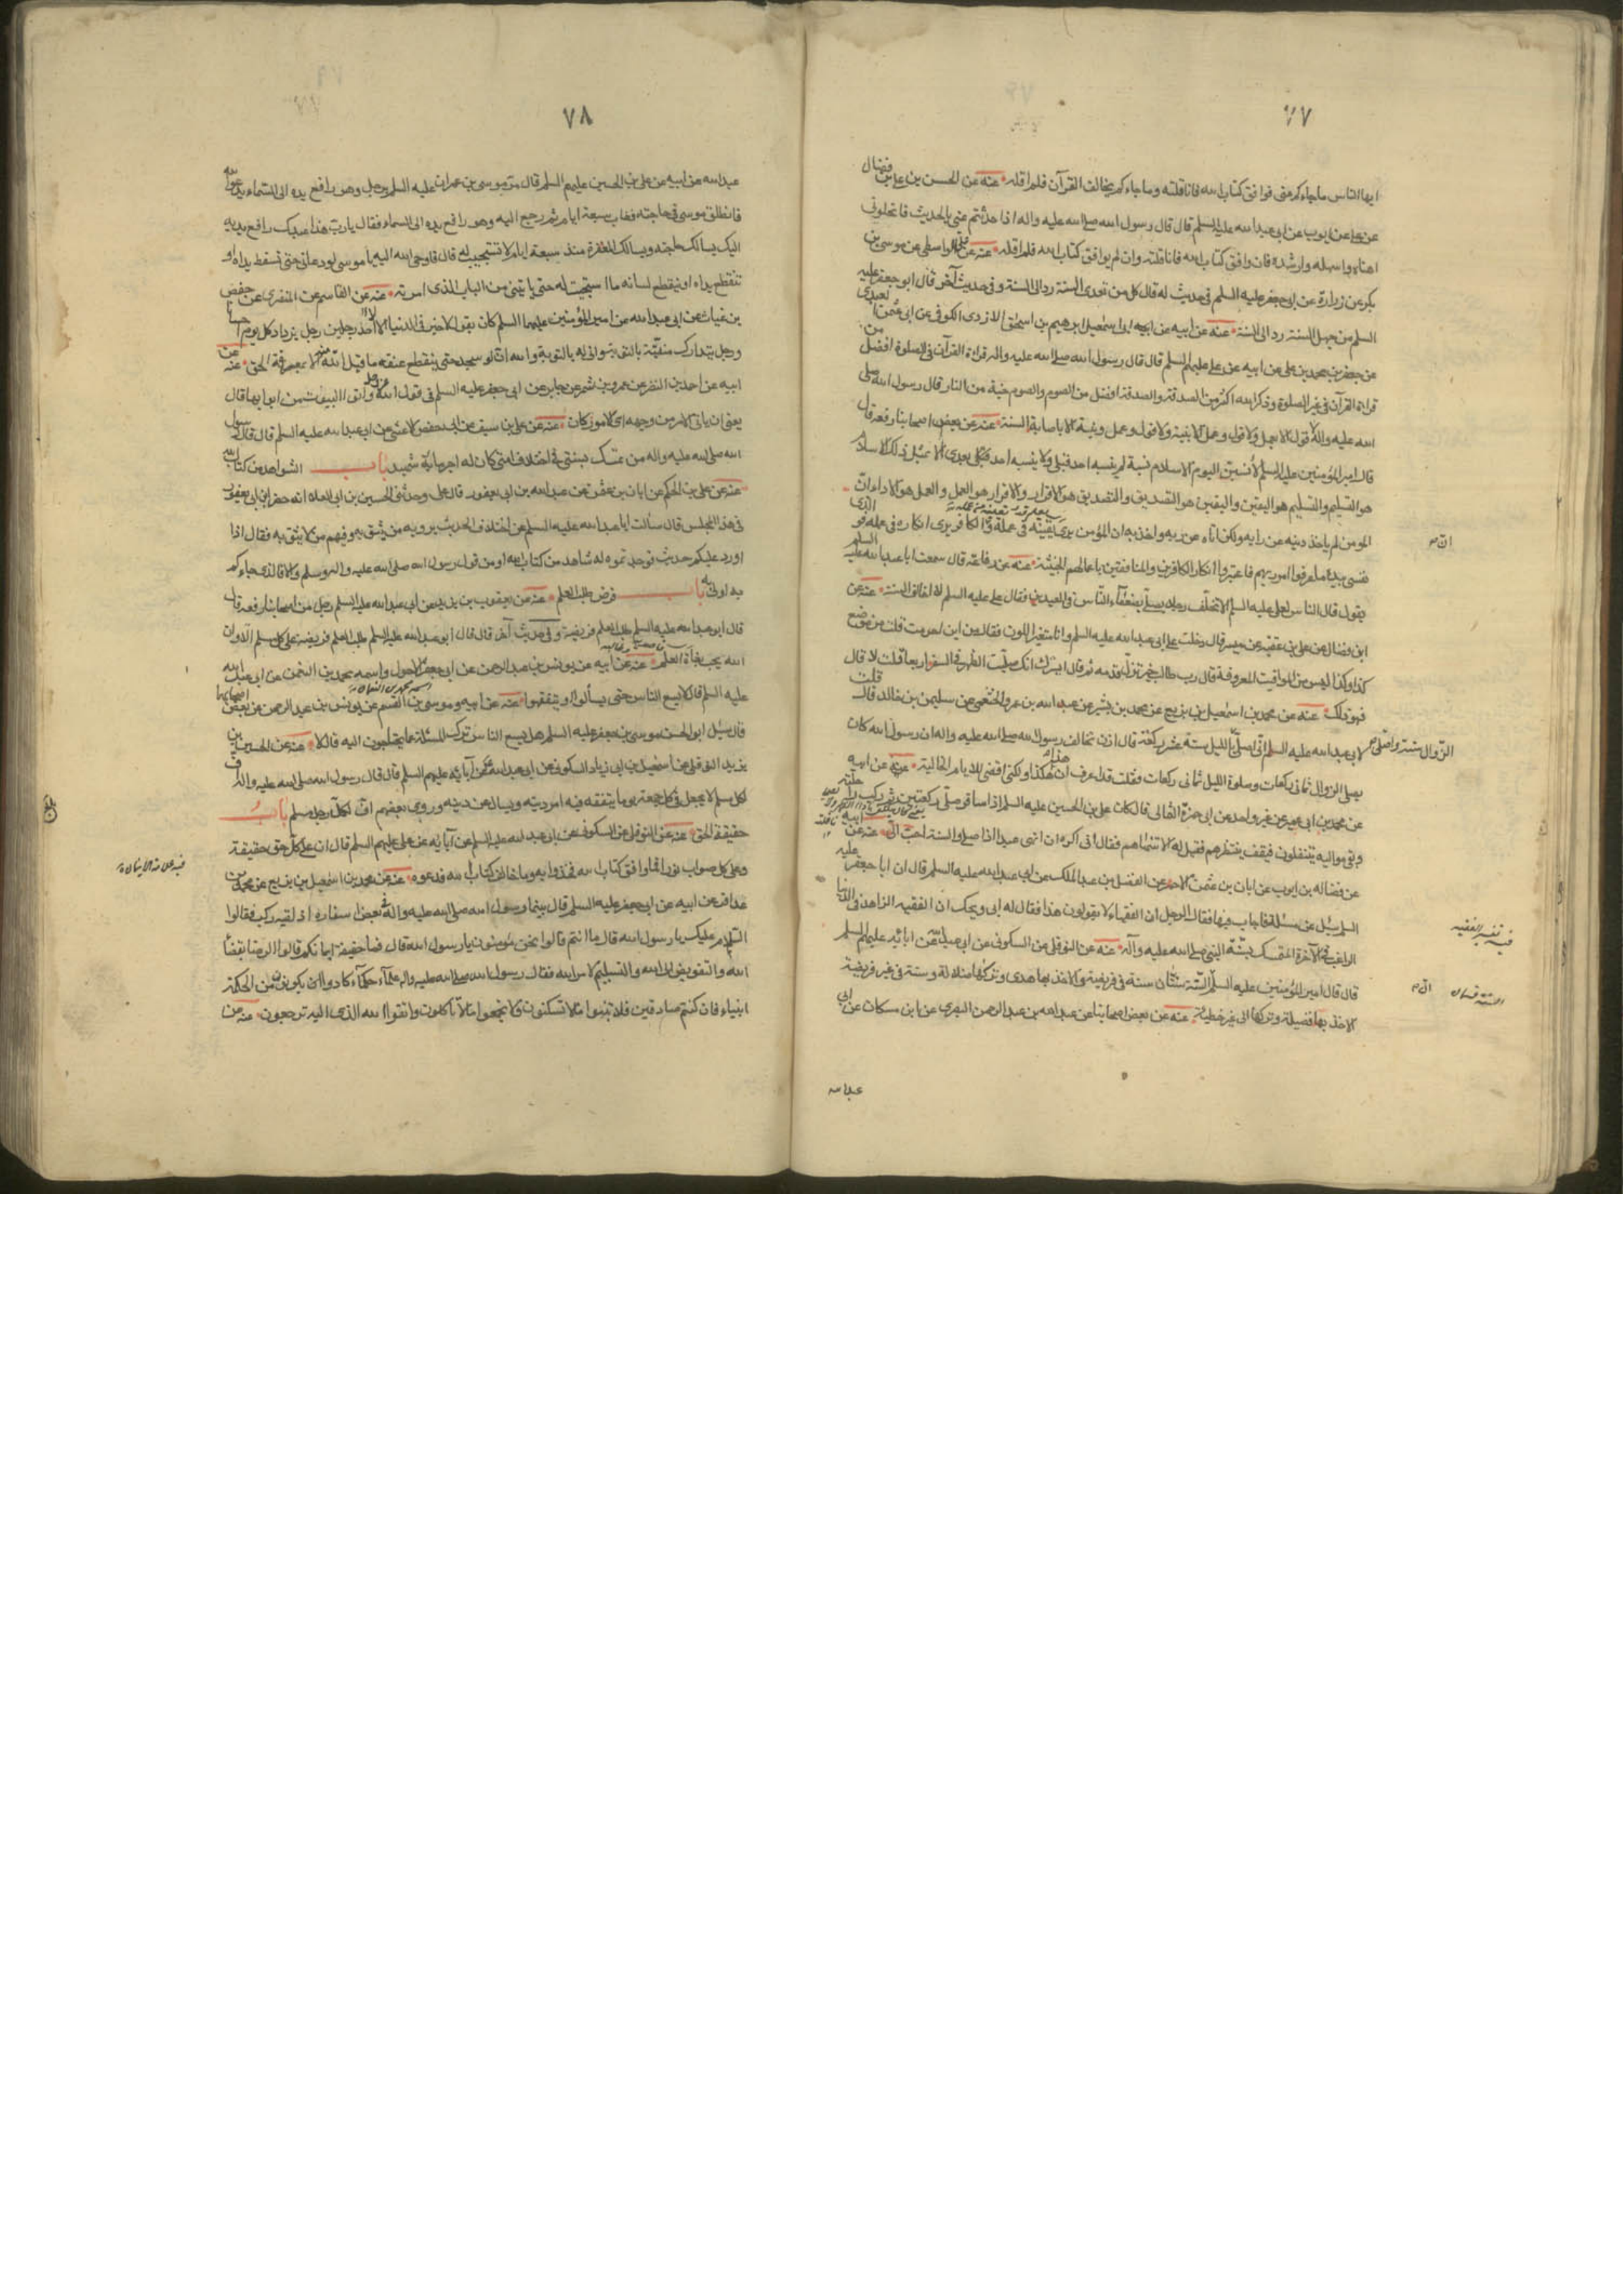 ٧٧
ايها الناس ما جاءكم عنى فوافق كتاب الله فانا قلته وما جاءكم يخالف القرآن فلم اقله عنه عن الحسن بن على بن فضال
عن على عن ايوب عن ابى عبد الله عليه السلم قال قال رسول الله صلى الله عليه واله اذا حدثتم عنى بالحديث فانحلونى
اهناه واسهله وارشده فان وافق كتاب الله فانا قلته وان لم يوافق كتاب الله فلم اقله عنه عن الواسطى عن موسى بن
بكر عن زرارة عن ابى جعفر عليه السلم فى حديث له قال كل من تعدى السنة رد الى السنة وفى حديث آخر قال ابو جعفر عليه
السلم من جهل السنة رد الى السنة عنه عن ابيه عن ابى اسمعيل ابرهيم بن اسحق الازدى الكوفى عن ابى عثمن العبدى
عن جعفر بن محمد بن على عن ابيه عن على عليهم السلم قال قال رسول الله صلى الله عليه واله قراءة القرآن فى الصلوة افضل من
قراءة القرآن فى غير الصلوة وذكر الله اكثر من الصدقة والصدقة افضل من الصوم والصوم جنة من النار قال رسول الله صلى
الله عليه واله لا قول الا بعمل ولا قول وعمل الا بنية ولا قول وعمل ونية الا باصابة السنة عنه عن بعض اصحابنا رفعه قال
قال امير المؤمنين عليه السلم لانسبن اليوم الاسلام نسبة لم ينسبه احد قبلى ولا ينسبه احد بعدى الا بمثل ذلك الاسلام
هو التسليم والتسليم هو اليقين واليقين هو التصديق والتصديق هو الاقرار والاقرار هو العمل والعمل هو الاداء ان
المؤمن لم ياخذ دينه عن رايه ولكن اتاه عن ربه واخذ به ان المؤمن يرى يقينه فى عمله والكافر يرى انكاره فى عمله فو الذى
نفسى بيده ما عرفوا امر ربهم فاعتبروا انكار الكافرين والمنافقين باعمالهم الخبيثة عنه عن رفاعة قال سمعت ابا عبد الله عليه السلم
يقول قال الناس لعلى عليه السلم الا تخلف رجلا يصلى بضعفاء الناس فى العيدين فقال على عليه السلم لا اخالف السنة عنه عن
ابن فضال عن على بن عقبة عن ميسر قال دخلت على ابى عبد الله عليه السلم وانا متغير اللون فقال من اين احرمت قلت من موضع
كذا وكذا ليس من المواقيت المعروفة قال رب طالب خير تزل قدمه ثم قال ايسرك انك صليت الظهر فى السفر اربعا قلت لا قال
فهو ذلك عنه عن محمد بن اسمعيل بن بزيع عن محمد بن بشير عن عبد الله بن عمرو الخثعمى عن سليمن بن خالد قال قلت
لابى عبد الله عليه السلم انى اصلى بالليل ستة عشر ركعة قال اذن تخالف رسول الله صلى الله عليه واله ان رسول الله كان
يصلى الزوال ثمانى ركعات وصلوة الليل ثمانى ركعات فقلت قد اعرف ان هذا هكذا ولكنى اقضى للايام الخالية عنه عن ابيه
عن محمد بن ابى عمير عن غير واحد عن ابى حمزة الثمالى قال كان على بن الحسين عليه السلم اذا سافر صلى ركعتين ثم ركب راحلته
وبقى مواليه يتنفلون فيقف ينتظرهم فقيل له الا تنهاهم فقال انى اكره ان انهى عبدا اذا صلى والسنة احب الى عنه عن ابيه
عن فضالة بن ايوب عن ابان بن عثمن الاحمر عن الفضل بن عبد الملك عن ابى عبد الله عليه السلم قال ان ابا جعفر عليه
السلم سئل عن مسئلة فاجاب فيها فقال الرجل ان الفقهاء لا يقولون هذا فقال له ابى ويحك ان الفقيه الزاهد فى الدنيا
الراغب فى الآخرة المتمسك بسنة النبى صلى الله عليه وآله عنه عن النوفلى عن السكونى عن ابى عبد الله عن ابائه عليهم السلم
قال قال امير المؤمنين عليه السلم السنة سنتان سنة فى فريضة والاخذ بها هدى وتركها ضلالة وسنة فى غير فريضة
الاخذ بها فضيلة وتركها الى غير خطيئة عنه عن بعض اصحابنا عن عبد الله بن عبد الرحمن البصرى عن ابن مسكان عن ابى
عبد الله
الزوال ستة واصلى
فيه تفسير الفقيه
السنة قسمان
٧٨
عبد الله عن ابيه عن على بن الحسين عليهم السلم قال مر موسى بن عمران عليه السلم برجل وهو رافع يده الى السماء يدعو الله
فانطلق موسى فى حاجته فغاب سبعة ايام ثم رجع اليه وهو رافع يده الى السماء فقال يا رب هذا عبدك رافع يديه
اليك يسالك حاجته ويسالك المغفرة منذ سبعة ايام لا تستجيب له قال فاوحى الله اليه يا موسى لو دعانى حتى تسقط يداه او
تنقطع يداه او ينقطع لسانه ما استجبت له حتى ياتينى من الباب الذى امرته عنه عن القاسم عن المنقرى عن حفص
بن غياث عن ابى عبد الله عن امير المؤمنين عليهما السلم كان يقول لا خير فى الدنيا الا لاحد رجلين رجل يزداد كل يوم احسانا
ورجل يتدارك منيته بالتوبة وانى له بالتوبة والله ان لو سجد حتى ينقطع عنقه ما قبل الله منه الا بمعرفة الحق عنه عن
ابيه عن احمد بن النضر عن عمرو بن شمر عن جابر عن ابى جعفر عليه السلم فى قول الله عز وجل واتوا البيوت من ابوابها قال
يعنى ان ياتى الامر من وجهه اى الامور كان عنه عن على بن سيف عن ابى حفص الاعشى عن ابى عبد الله عليه السلم قال قال رسول
الله صلى الله عليه واله من تمسك بسنتى فى اختلاف امتى كان له اجر مائة شهيد باب الشواهد من كتاب الله
عنه عن على بن الحكم عن ابان بن عثمن عن عبد الله بن ابى يعفور قال على وحدثنى الحسين بن ابى العلاء انه حضر ابن ابى يعفور
فى هذا المجلس قال سألت ابا عبد الله عليه السلم عن اختلاف الحديث يرويه من يثق به وفيهم من لا يثق به فقال اذا
اورد عليكم حديث فوجدتموه له شاهد من كتاب الله او من قول رسول الله صلى الله عليه واله وسلم والا فالذى جاءكم
به اولى به باب فرض طلب العلم عنه عن يعقوب بن يزيد عن ابى عبد الله عليه السلم رجل من اصحابنا رفعه قال
قال ابو عبد الله عليه السلم طلب العلم فريضة وفى حديث آخر قال قال ابو عبد الله عليه السلم طلب العلم فريضة على كل مسلم الا وان
الله يحب بغاة العلم عنه عن ابيه عن يونس بن عبد الرحمن عن ابى جعفر الاحول واسمه محمد بن النعمن عن ابى عبد الله
عليه السلم قال لا يسع الناس حتى يسألوا او يتفقهوا عنه عن ابيه وموسى بن القسم عن يونس بن عبد الرحمن عن بعض اصحابهما
قال سئل ابو الحسن موسى بن جعفر عليه السلم هل يسع الناس ترك المسئلة عما يحتاجون اليه قال لا عنه عن الحسين بن
يزيد النوفلى عن اسمعيل بن ابى زياد السكونى عن ابى عبد الله عن آبائه عليهم السلم قال قال رسول الله صلى الله عليه واله اف
لكل مسلم لا يجعل فى كل جمعة يوما يتفقه فيه امر دينه ويسال عن دينه وروى بعضهم اف لكل رجل مسلم باب
حقيقة الحق عنه عن النوفلى عن السكونى عن ابى عبد الله عليه السلم عن آبائه عن على عليهم السلم قال ان على كل حق حقيقة
وعلى كل صواب نورا فما وافق كتاب الله فخذوا به وما خالف كتاب الله فدعوه عنه عن محمد بن اسمعيل بن بزيع عن محمد بن
عذافر عن ابيه عن ابى جعفر عليه السلم قال بينما رسول الله صلى الله عليه واله فى بعض اسفاره اذ لقيه ركب فقالوا
السلام عليك يا رسول الله قال ما انتم قالوا نحن مؤمنون يا رسول الله قال فما حقيقة ايمانكم قالوا الرضا بقضاء
الله والتفويض الى الله والتسليم لامر الله فقال رسول الله صلى الله عليه واله علماء حكماء كادوا ان يكونوا من الحكمة
انبياء فان كنتم صادقين فلا تبنوا ما لا تسكنون ولا تجمعوا ما لا تاكلون واتقوا الله الذى اليه ترجعون عنه عن